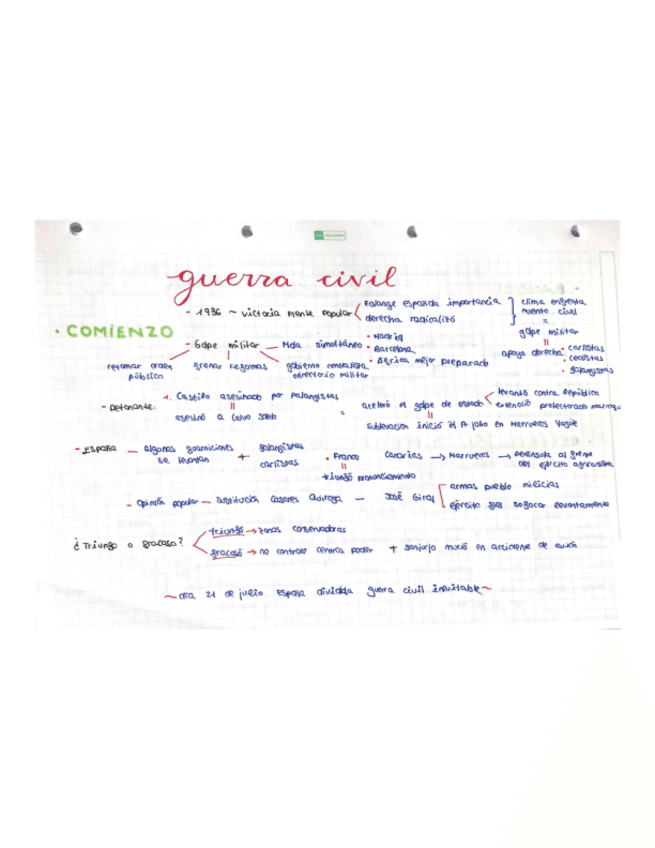 guerra civil
- 1936 ~ victoria Frente Popular
Falange española importancia
derecha radicalizó
clima enfrentamiento civil
=
golpe militar
apoyo derecha
• carlistas
• cedistas
• falangistas
• COMIENZO
- Golpe militar — Mola simultáneo
• Madrid
• Barcelona
• África mejor preparado
retomar orden público
frenar reformas
gobierno centralista directorio militar
- Detonante:
1. Castillo asesinado por falangistas
=
asesinó a Calvo Sotelo
=
aceleró el golpe de estado
levantó contra República
extendió protectorado marroqu
=
Sublevación inició el 17 julio en Marruecos Yagüe
- ESPAÑA — algunas guarniciones se levantan + falangistas carlistas
• Franco Canarias → Marruecos → península al frente del ejército africanista
=
triunfó pronunciamiento
- Opinión popular — sustitución Casares Quiroga — José Giral
armas pueblo milicias
ejército fiel sofocar levantamiento
¿Triunfo o fracaso?
triunfo → zonas conservadoras
fracaso → no controló centros poder + Sanjurjo murió en accidente de avión
~ día 21 de julio España dividida guerra civil inevitable ~